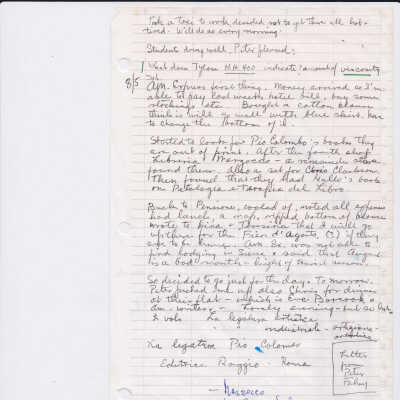 Took a taxi to work decided not to get there all hot-
tired. Will do so every morning.
Students doing well, Peter pleased.
1 What does Tylose MH 400 indicate? amount of viscosity
8/5 Am. Express first thing. Money arrived so I'm
able to pay last week's hotel bill, buy some
stockings etc. Bought a cotton blouse
think it will go well with blue skirt. has
to change the bottom of it.
Started to look for Pio Colombo's books they
are out of print. After the fourth shop
Libreria Marzocco - a remainder store
found them. also a set for Chris Clarkson
Then found that they had Gallo's book
on Patologia e Terapia del Libro.
Back to Pensione, cooled off, noted all expenses
had lunch, a nap, ripped bottom of blouse
wrote to Nina + that I will go
up there for the Fier d'Agosto, (?) if they
are to be there. Am. Ex. was not able to
find lodging in Siena + said that August
is a bad month - height of tourist season.
So decided to go just for the day. Tomorrow.
Peter picked me up also Chris for dinner
at their flat - which is Eve Borsook's
Am. writer. Lovely evening - but so hot.
2 vols La legatura artistica
industriale - artigiana
artistica
La legatura Pio Colombo
Editrice Raggio - Roma
Letter
from
Peter
Fahey
Marzocco